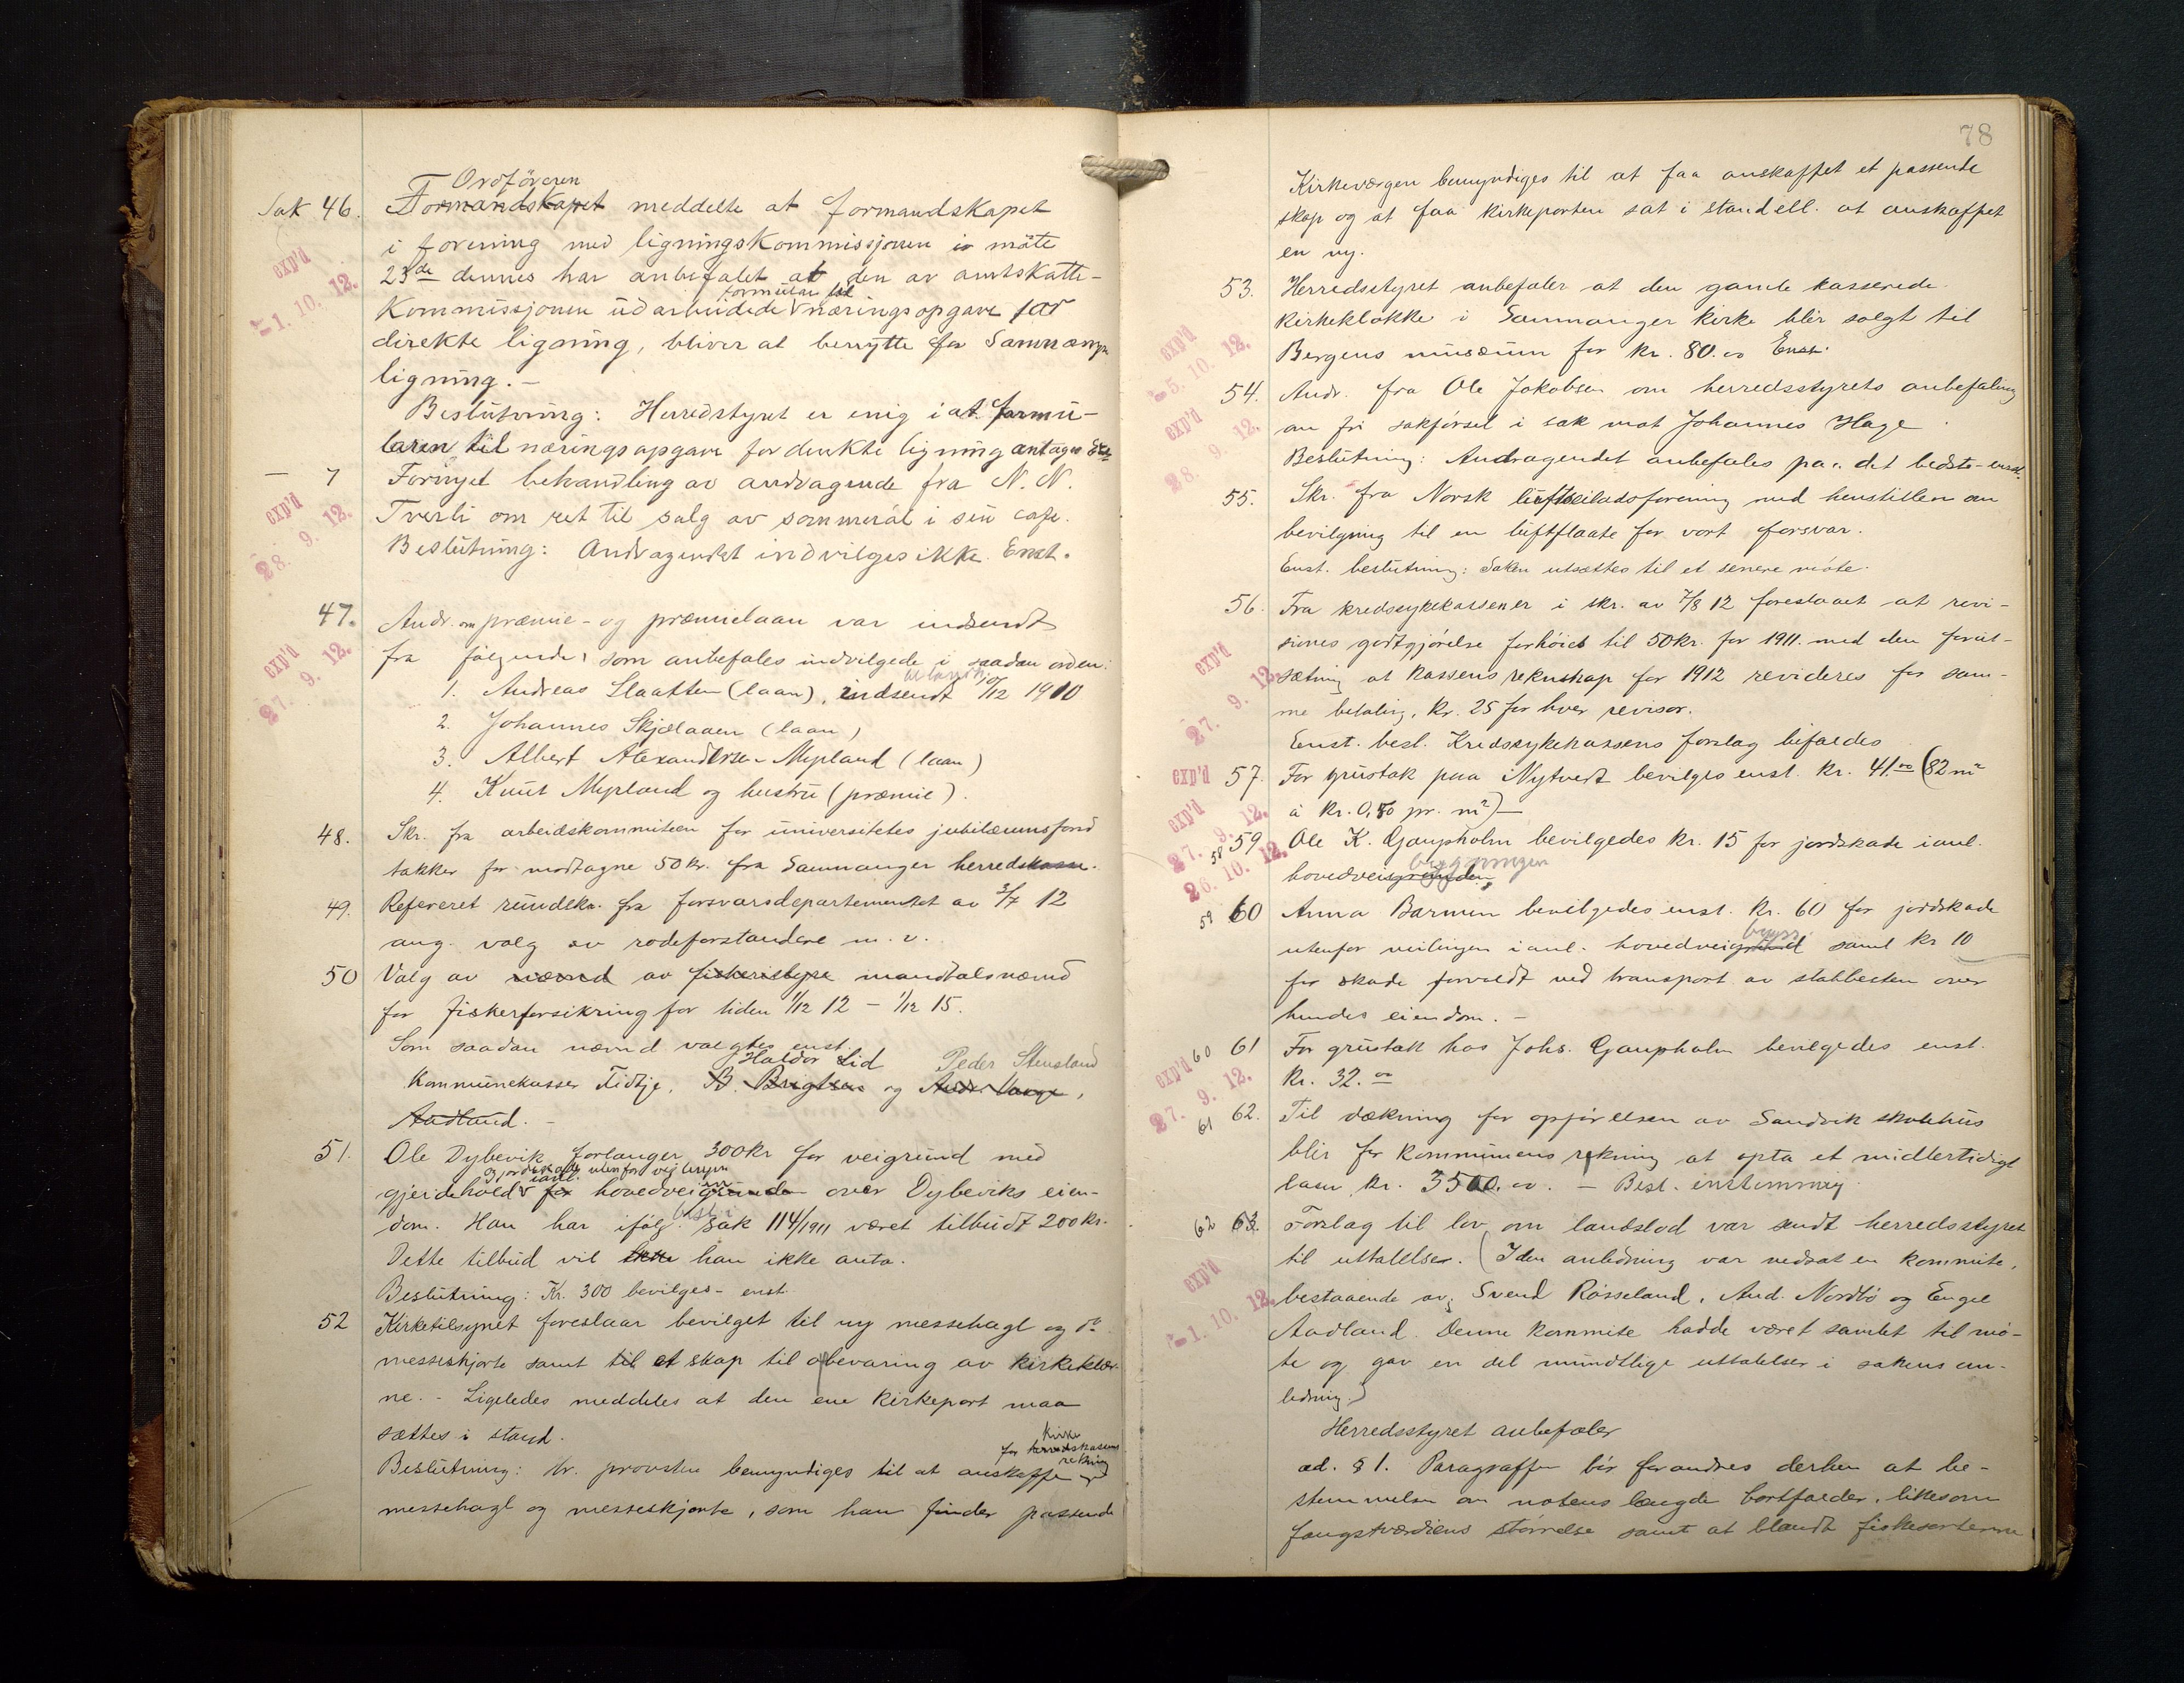 Ordføreren
Sak 46. Formandskapet meddelte at formandskapet
i forening med ligningskommissjonen i møte
exp'd
-1. 10. 12.
23de dennes har anbefalet at den av amtskatte-
formular til
Kommissjonen udarbeidede næringsopgave for
direkte ligning, bliver at benytte for Samnanger
ligning. –
Beslutning: Herredstyret er enig i at formu-
laren til næringsopgave for direkte ligning antages Enst
— 7 Fornyet behandling av andragende fra N. N.
exp'd
28. 9. 12.
Tverli om ret til salg av sommerøl i sin cafe.
Beslutning: Andragendet indvilges ikke. Enst.
47. Andr. om præmie- og præmielaan var indsendt
exp'd
27. 9. 12.
fra følgende, som anbefales indvilgede i saadan orden:
1. Andreas Slaatten (laan), indsendt 10/12 1910
2. Johannes Skjælaaen (laan)
3. Albert Alexandersen Mypland (laan)
4. Knut Mypland og hustru (præmie).
48. Skr. fra arbeidskommiteen for universitetes jubilæumsfond
takker for modtagne 50 kr. fra Samnanger herredskasse.
49. Refereret rundskr. fra forsvarsdepartementet av 3/7 12
ang. valg av rodeforstandere m. v.
50 Valg av nævnd av fiskeristyre mandtalsnævnd
for fiskerforsikring for tiden 1/12 12 – 1/12 15.
Som saadan nævnd valgtes enst.
Haldor Lid Peder Stensland
Kommunekasser Tidtje, B. Brigtsen og Andr. Lange,
Aadland. –
51. Ole Dybevik forlanger 300 kr for veigrund med
og jordskade utenfor veilinjen
i anl.
gjerdehold for hovedveigrunden over Dybeviks eien-
besl. i
dom. Han har ifølg. sak 114/1911 været tilbudt 200 kr.
Dette tilbud vil ikke han ikke anta.
Beslutning: Kr. 300 bevilges – enst.
52 Kirketilsynet foreslaar bevilget til ny messehagl og do
messeskjorte samt til et skap til opbevaring av kirkeklær-
ne. – Ligeledes meddeles at den ene kirkeport maa
sættes i stand.
Kirke
for herredskassens
rekning
Beslutning: Hr. provsten bemyndiges til at anskaffe ny
messehagl og messeskjorte, som han finder passende
78
Kirkeværgen bemyndiges til at faa anskaffet et passende
skap og at faa kirkeporten sat i stand ell. at anskaffet
en ny.
53. Herredsstyret anbefaler at den gamle kasserede
kirkeklokke i Samnanger kirke blir solgt til
exp'd
-5. 10. 12.
Bergens museum for kr. 80.00 Enst.
54. Andr. fra Ole Jakobsen om herredsstyrets anbefaling
exp'd
28. 9. 12.
om fri sakførsel i sak mot Johannes Hage.
Beslutning: Andragendet anbefales paa det bedste – enst.
55. Skr. fra Norsk luftseiladsforening med henstillen om
bevilgning til en luftflaate for vort forsvar.
Enst. beslutning: Saken utsættes til et senere møte.
56. Fra kredssykekassen er i skr. av 7/8 12 foreslaaet at revi-
sionens godtgjørelse forhøies til 50 kr. for 1911. med den forut-
exp'd
27. 9. 12.
sætning at kassens rekneskap for 1912 revideres for sam-
me betaling, kr. 25 for hver revisor.
Enst. besl. Kredssykekassens forslag bifaldes
exp'd 57. For grustak paa Nytvedt bevilges enst. kr. 41.00 (82 m2
à kr. 0,50 pr. m2) –
exp'd
27. 9. 12.
58 59 Ole K. Gaupholm bevilgedes kr. 15 for jordskade i anl.
26. 10. 12.
bygningen
hovedveigrunden,
59 60 Anna Barmen bevilgedes enst. kr. 60 for jordskade
bygn.
utenfor veilinjen i anl. hovedveigrund samt kr 10
for skade forvoldt ved transport av stabbesten over
hendes eiendom. –
60 61 For grustak hos Johs. Gaupholm bevilgedes enst.
exp'd
27. 9. 12.
kr. 32.00
61 62. Til dækning for opførelsen av Sandvik skolehus
blir for kommunens rekning at opta et midlertidigt
laan, kr. 3500.00. – Besl. enstemmig
62 63. Forslag til lov om landslod var sendt herredsstyret
til uttalelse. (I den anledning var nedsat en kommite,
exp'd
-1. 10. 12.
bestaaende av: Svend Røsseland, And. Nordbø og Engel
Aadland. Denne kommite hadde været samlet til mø-
te og gav en del mundtlige uttalelser i sakens an-
ledning.)
Herredsstyret anbefaler
ad. § 1. Paragraffen bør forandres derhen at be-
stemmelsen om notens længde bortfalder, likesom
fangstværdiens størrelse samt at blandt fiskesorterne